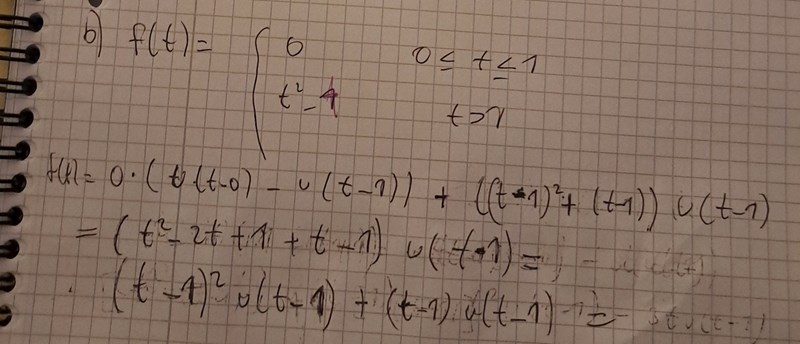 b) f(t) = { 0    0 ≤ t ≤ 1
t² - 1    t > 1
f(t) = 0 · (u(t-0) - u(t-1)) + ((t-1)² + (t-1)) u(t-1)
= (t² - 2t + 1 + t - 1) u(t-1) =
(t-1)² u(t-1) + (t-1) u(t-1) =